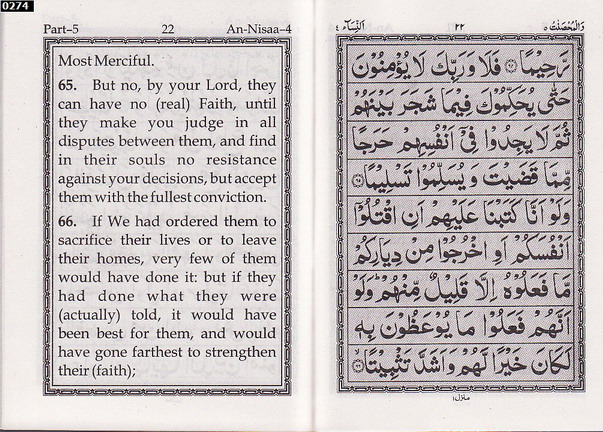 0274
Part–5 22 An-Nisaa–4
Most Merciful.
65. But no, by your Lord, they
can have no (real) Faith, until
they make you judge in all
disputes between them, and find
in their souls no resistance
against your decisions, but accept
them with the fullest conviction.
66. If We had ordered them to
sacrifice their lives or to leave
their homes, very few of them
would have done it: but if they
had done what they were
(actually) told, it would have
been best for them, and would
have gone farthest to strengthen
their (faith);
وَالْمُحْصَنٰتُ ٥ ٢٢ اَلنِّسَآء ٤
رَّحِيْمًا ۝٦٤ فَلَا وَرَبِّكَ لَا يُؤْمِنُوْنَ
حَتّٰى يُحَكِّمُوْكَ فِيْمَا شَجَرَ بَيْنَهُمْ
ثُمَّ لَا يَجِدُوْا فِيْٓ اَنْفُسِهِمْ حَرَجًا
مِّمَّا قَضَيْتَ وَ يُسَلِّمُوْا تَسْلِيْمًا ۝٦٥
وَلَوْ اَنَّا كَتَبْنَا عَلَيْهِمْ اَنِ اقْتُلُوْٓا
اَنْفُسَكُمْ اَوِ اخْرُجُوْا مِنْ دِيَارِكُمْ
مَّا فَعَلُوْهُ اِلَّا قَلِيْلٌ مِّنْهُمْ ۚ وَلَوْ
اَنَّهُمْ فَعَلُوْا مَا يُوْعَظُوْنَ بِهٖ
لَكَانَ خَيْرًا لَّهُمْ وَاَشَدَّ تَثْبِيْتًا ۝٦٦
منزل١